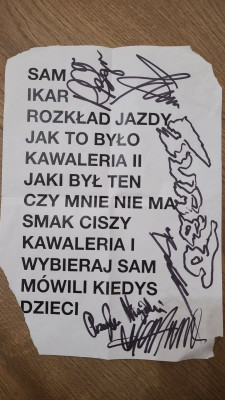 SAM
IKAR
ROZKŁAD JAZDY
JAK TO BYŁO
KAWALERIA II
JAKI BYŁ TEN
CZY MNIE NIE MA
SMAK CISZY
KAWALERIA I
WYBIERAJ SAM
MÓWILI KIEDYS
DZIECI